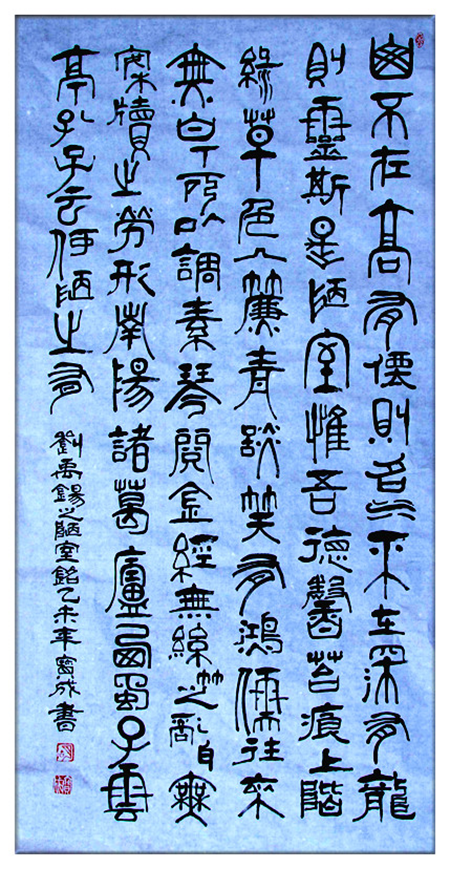 山不在高有僊則名水不在深有龍
則靈斯是陋室惟吾德馨苔痕上階
綠草色入簾青談笑有鴻儒往來
無白丁可以調素琴閱金經無絲竹之亂耳無
案牘之勞形南陽諸葛廬西蜀子雲
亭孔子云何陋之有
劉禹錫之陋室銘乙未年成書